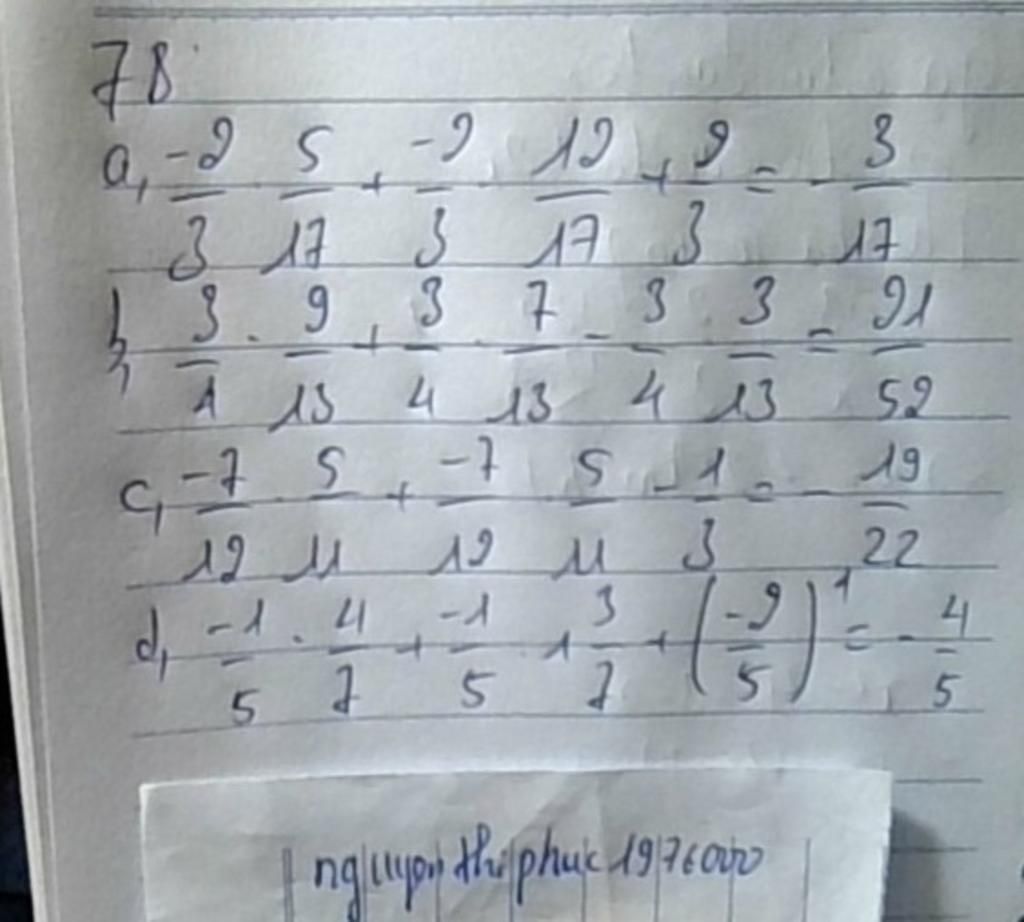 7B
a, -2/3 · 5/17 + -2/3 · 12/17 + 2/3 = - 3/17
b, 3/1 · 9/13 + 3/4 · 7/13 - 3/4 · 3/13 = 91/52
c, -7/12 · 5/11 + -7/12 · 5/11 - 1/3 = - 19/22
d, -1/5 · 4/7 + -1/5 · 1 3/7 + (-2/5)^1 = - 4/5
nguyen thi phuc 1976000